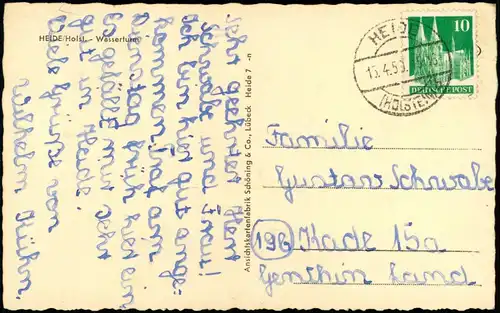 HEIDE/Holst. - Wasserturm
Sehr geehrter Herr
Schwabe und Frau!
Ich bin hier gut ange-
kommen traf am
Dienstag früh hier ein
Es gefällt mir sehr
gut in Heide.
Viele Grüße von
Wilhelm Kühn.
Ansichtskartenfabrik Schöning & Co., Lübeck Heide 7 -n
HEIDE
(HOLSTEIN)
10
DEUTSCHE POST
Familie
Gustav Schwabe
(19b) Kade 15a
Genthin Land